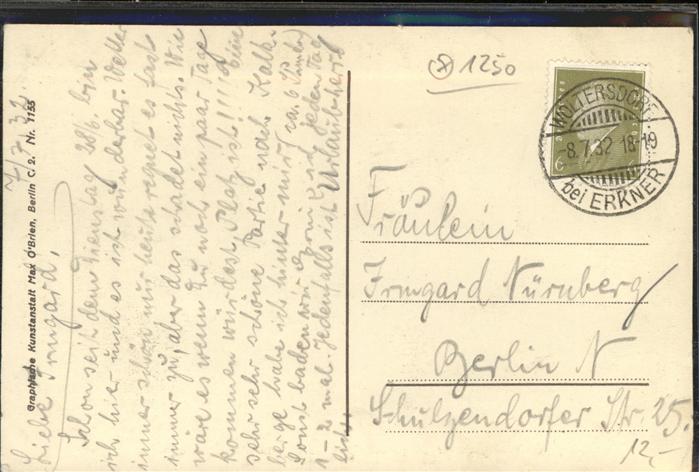 7/7 32.
Liebe Irmgard,
Schon seit dem Dienstag 28/6. bin
ich hier und es ist wunderbar. Wetter
immer schön nur heute regnet es fast
immer zu, aber das schadet nichts. Wie
wäre es wenn Du noch ein paar Tage
kommen würdest, Platz ist!!!! Eine
sehr sehr schöne Partie nach Kalk-
berge habe ich hinter mir ca. 6 Stunden
Sonst baden wir jeden Tag
1-2 mal. Jedenfalls ist Urlaub herr-
lich.
Graphische Kunstanstalt Max O'Brien, Berlin C. 2. Nr. 1155
1250
WOLTERSDORF
-8.7.32 18-19
bei ERKNER
6
Fräulein
Irmgard Nürnberg
Berlin N
Schulzendorfer Str. 25.
12,-